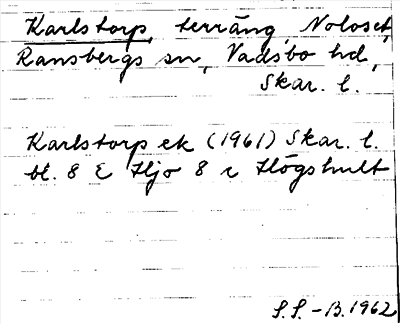 Karlstorp, terräng, Noloset,
Ransbergs sn, Vadsbo hd,
Skar. l.
Karlstorp ek (1961) Skar. l.
bl. 8 E Hjo 8 c Högshult
S.S.-B. 1962